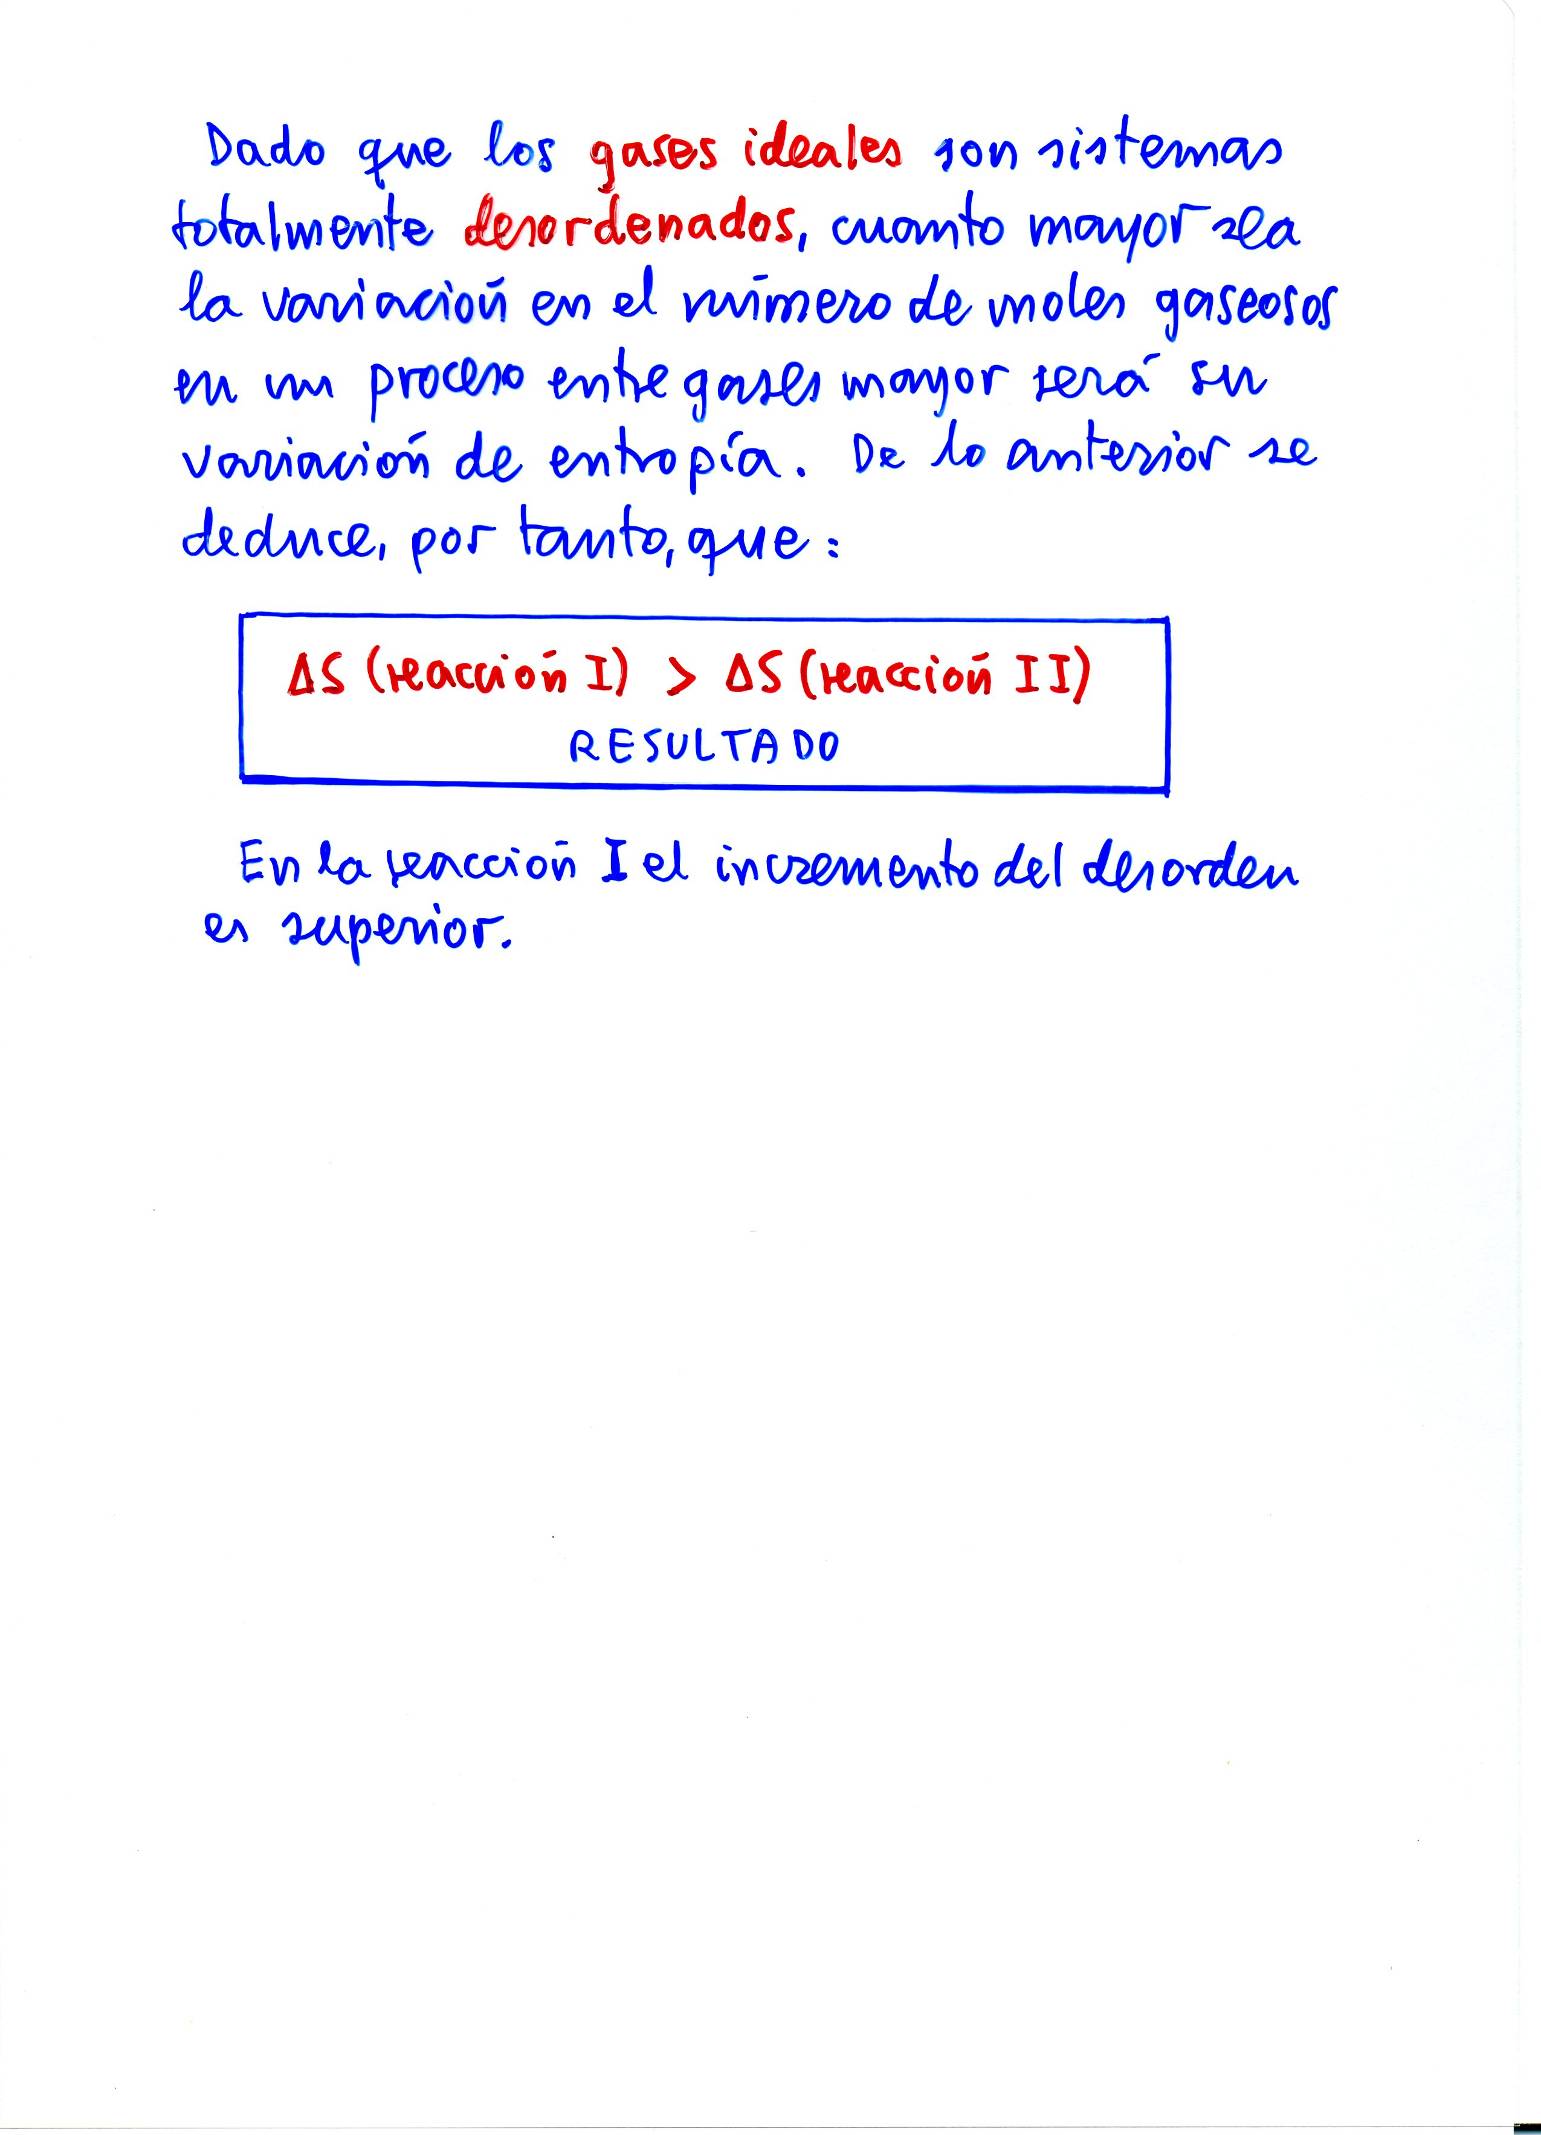 Dado que los gases ideales son sistemas
totalmente desordenados, cuanto mayor sea
la variación en el número de moles gaseosos
en un proceso entre gases mayor será su
variación de entropía. De lo anterior se
deduce, por tanto, que:
ΔS (reacción I) > ΔS (reacción II)
RESULTADO
En la reacción I el incremento del desorden
es superior.